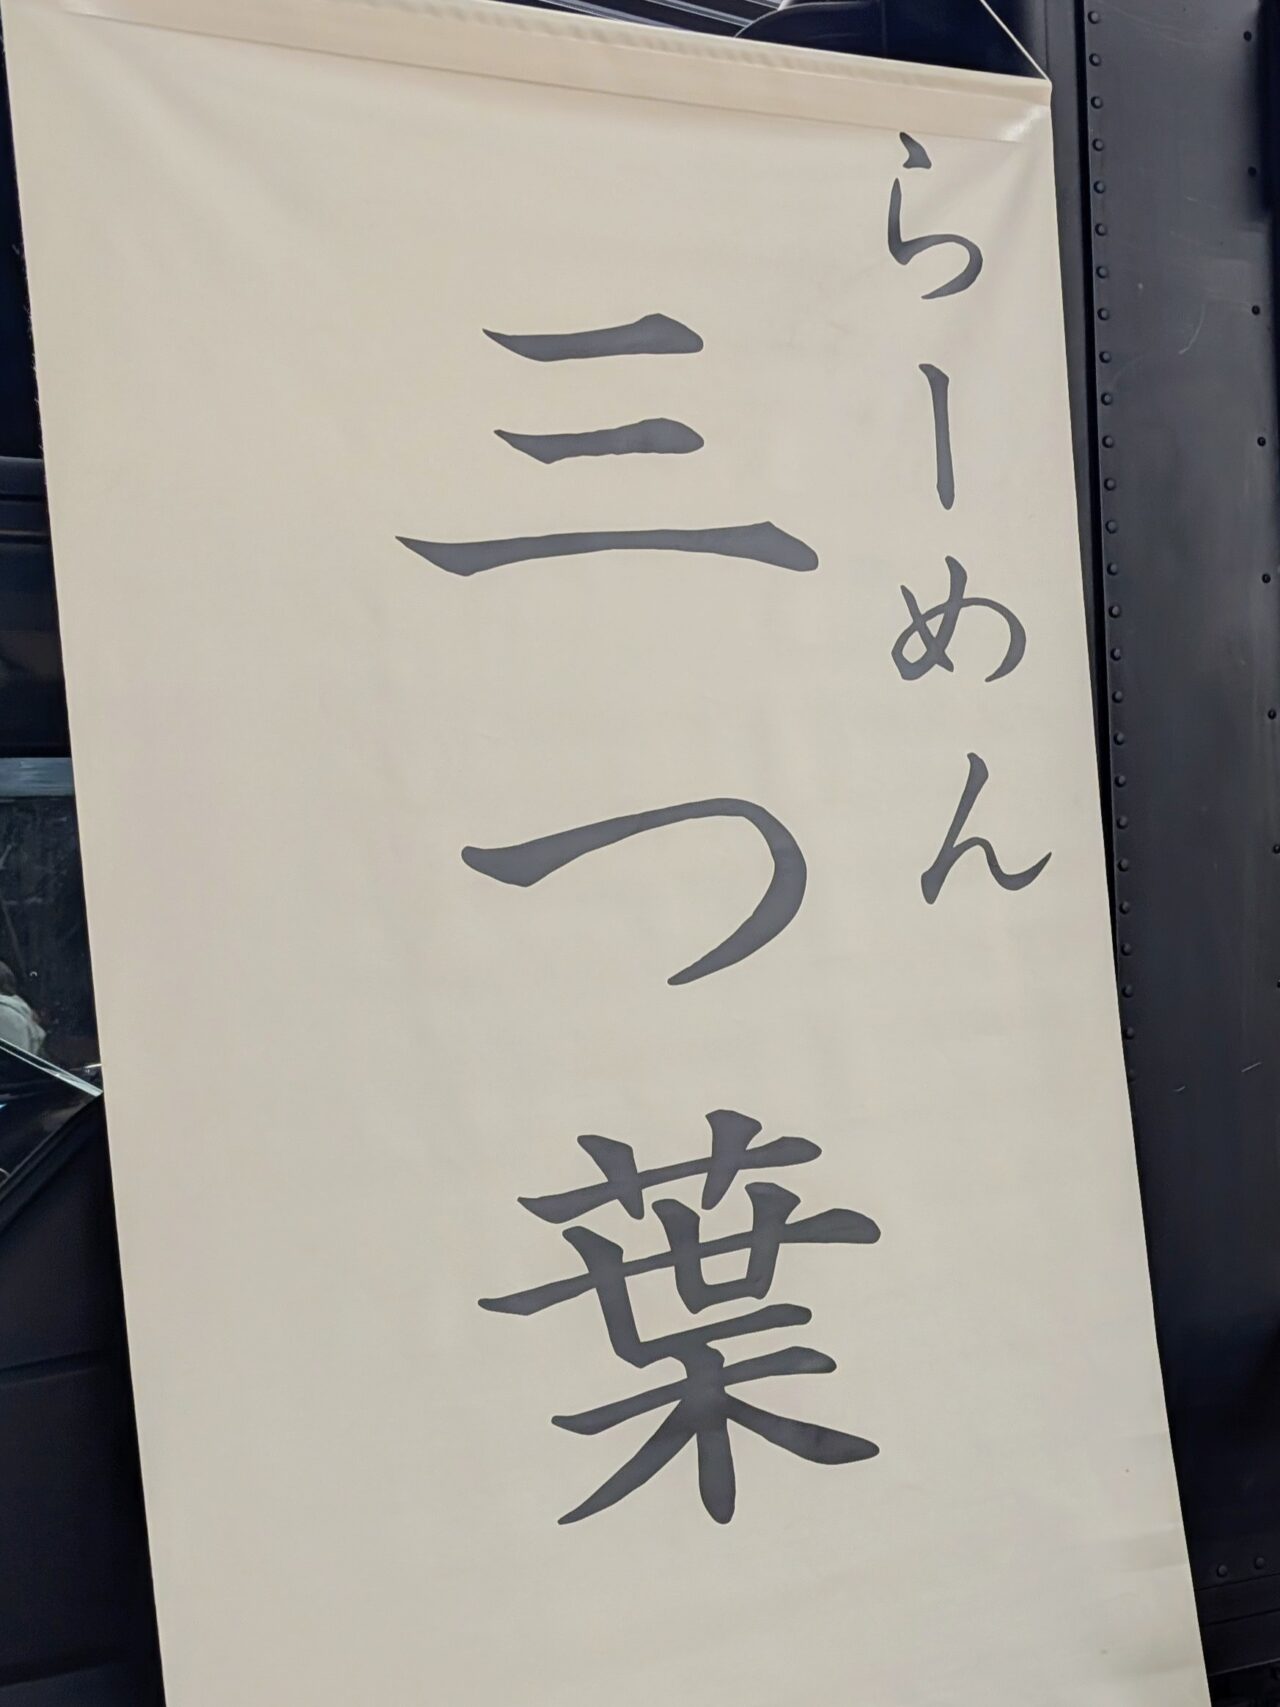 らーめん
三つ葉